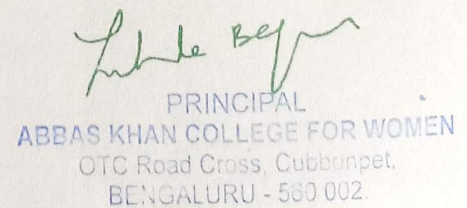 Begum
PRINCIPAL
ABBAS KHAN COLLEGE FOR WOMEN
OTC Road Cross, Cubbonpet,
BENGALURU - 560 002.